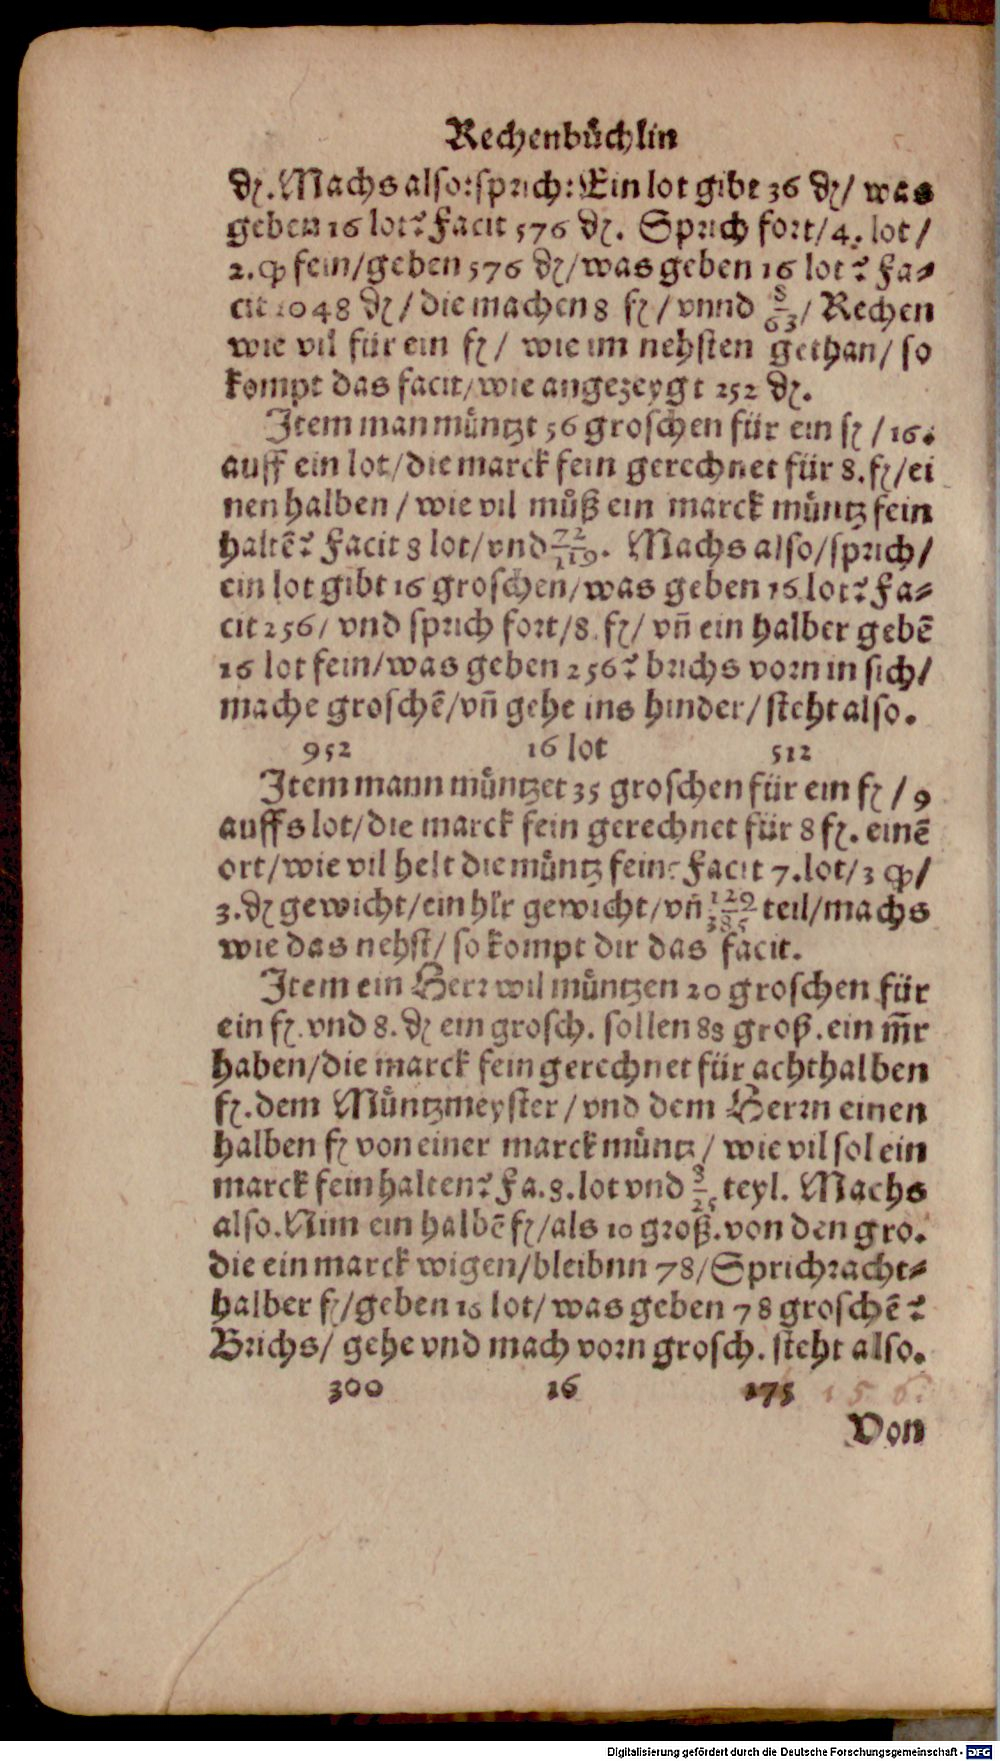 Rechenbuͤchlin
₰. Machs also: sprich: Ein lot gibt 36 ₰/ was
geben 16 lot? Facit 576 ₰. Sprich fort/4. lot/
2. qͥ fein/geben 576 ₰/was geben 16 lot? Fa⸗
cit 2048 ₰/ die machen 8 fl/ vnnd 8/63/ Rechen
wie vil für ein fl/ wie im nehsten gethan/ so
kompt das facit/wie angezeygt 252 ₰.
Item man muͤntzt 56 groschen für ein fl/16.
auff ein lot/die marck fein gerechnet für 8. fl/ei
nen halben/ wie vil muͤß ein marck muͤntz fein
haltē? Facit 8 lot/vnd 72/119. Machs also/sprich/
ein lot gibt 16 groschen/was geben 16 lot? Fa⸗
cit 256/ vnd sprich fort/8. fl/ vn̄ ein halber gebē
16 lot fein/was geben 256? brichs vorn in sich/
mache groschē/vn̄ gehe ins hinder/ steht also.
952 16 lot 512
Item mann muͤntzet 35 groschen für ein fl/ 9
auffs lot/die marck fein gerechnet für 8 fl. einē
ort/wie vil helt die muͤntz fein? Facit 7. lot/3 qͥ/
3. ₰ gewicht/ein hlr gewicht/vn̄ 129/385 teil/machs
wie das nehst/ so kompt dir das facit.
Item ein Herr wil muͤntzen 20 groschen für
ein fl. vnd 8. ₰ ein grosch. sollen 88 groß. ein m̄r
haben/die marck fein gerechnet für achthalben
fl. dem Muͤntzmeyster/ vnd dem Herrn einen
halben fl von einer marck muͤntz/ wie vil sol ein
marck fein halten? Fa. 8. lot vnd 8/25 teyl. Machs
also. Nim ein halbē fl/als 10 groß. von den gro.
die ein marck wigen/bleibnn 78/Sprich: acht⸗
halber fl/geben 16 lot/was geben 78 groschē?
Brichs/ gehe vnd mach vorn grosch. steht also.
300 16 175 156
Von
Digitalisierung gefördert durch die Deutsche Forschungsgemeinschaft - DFG